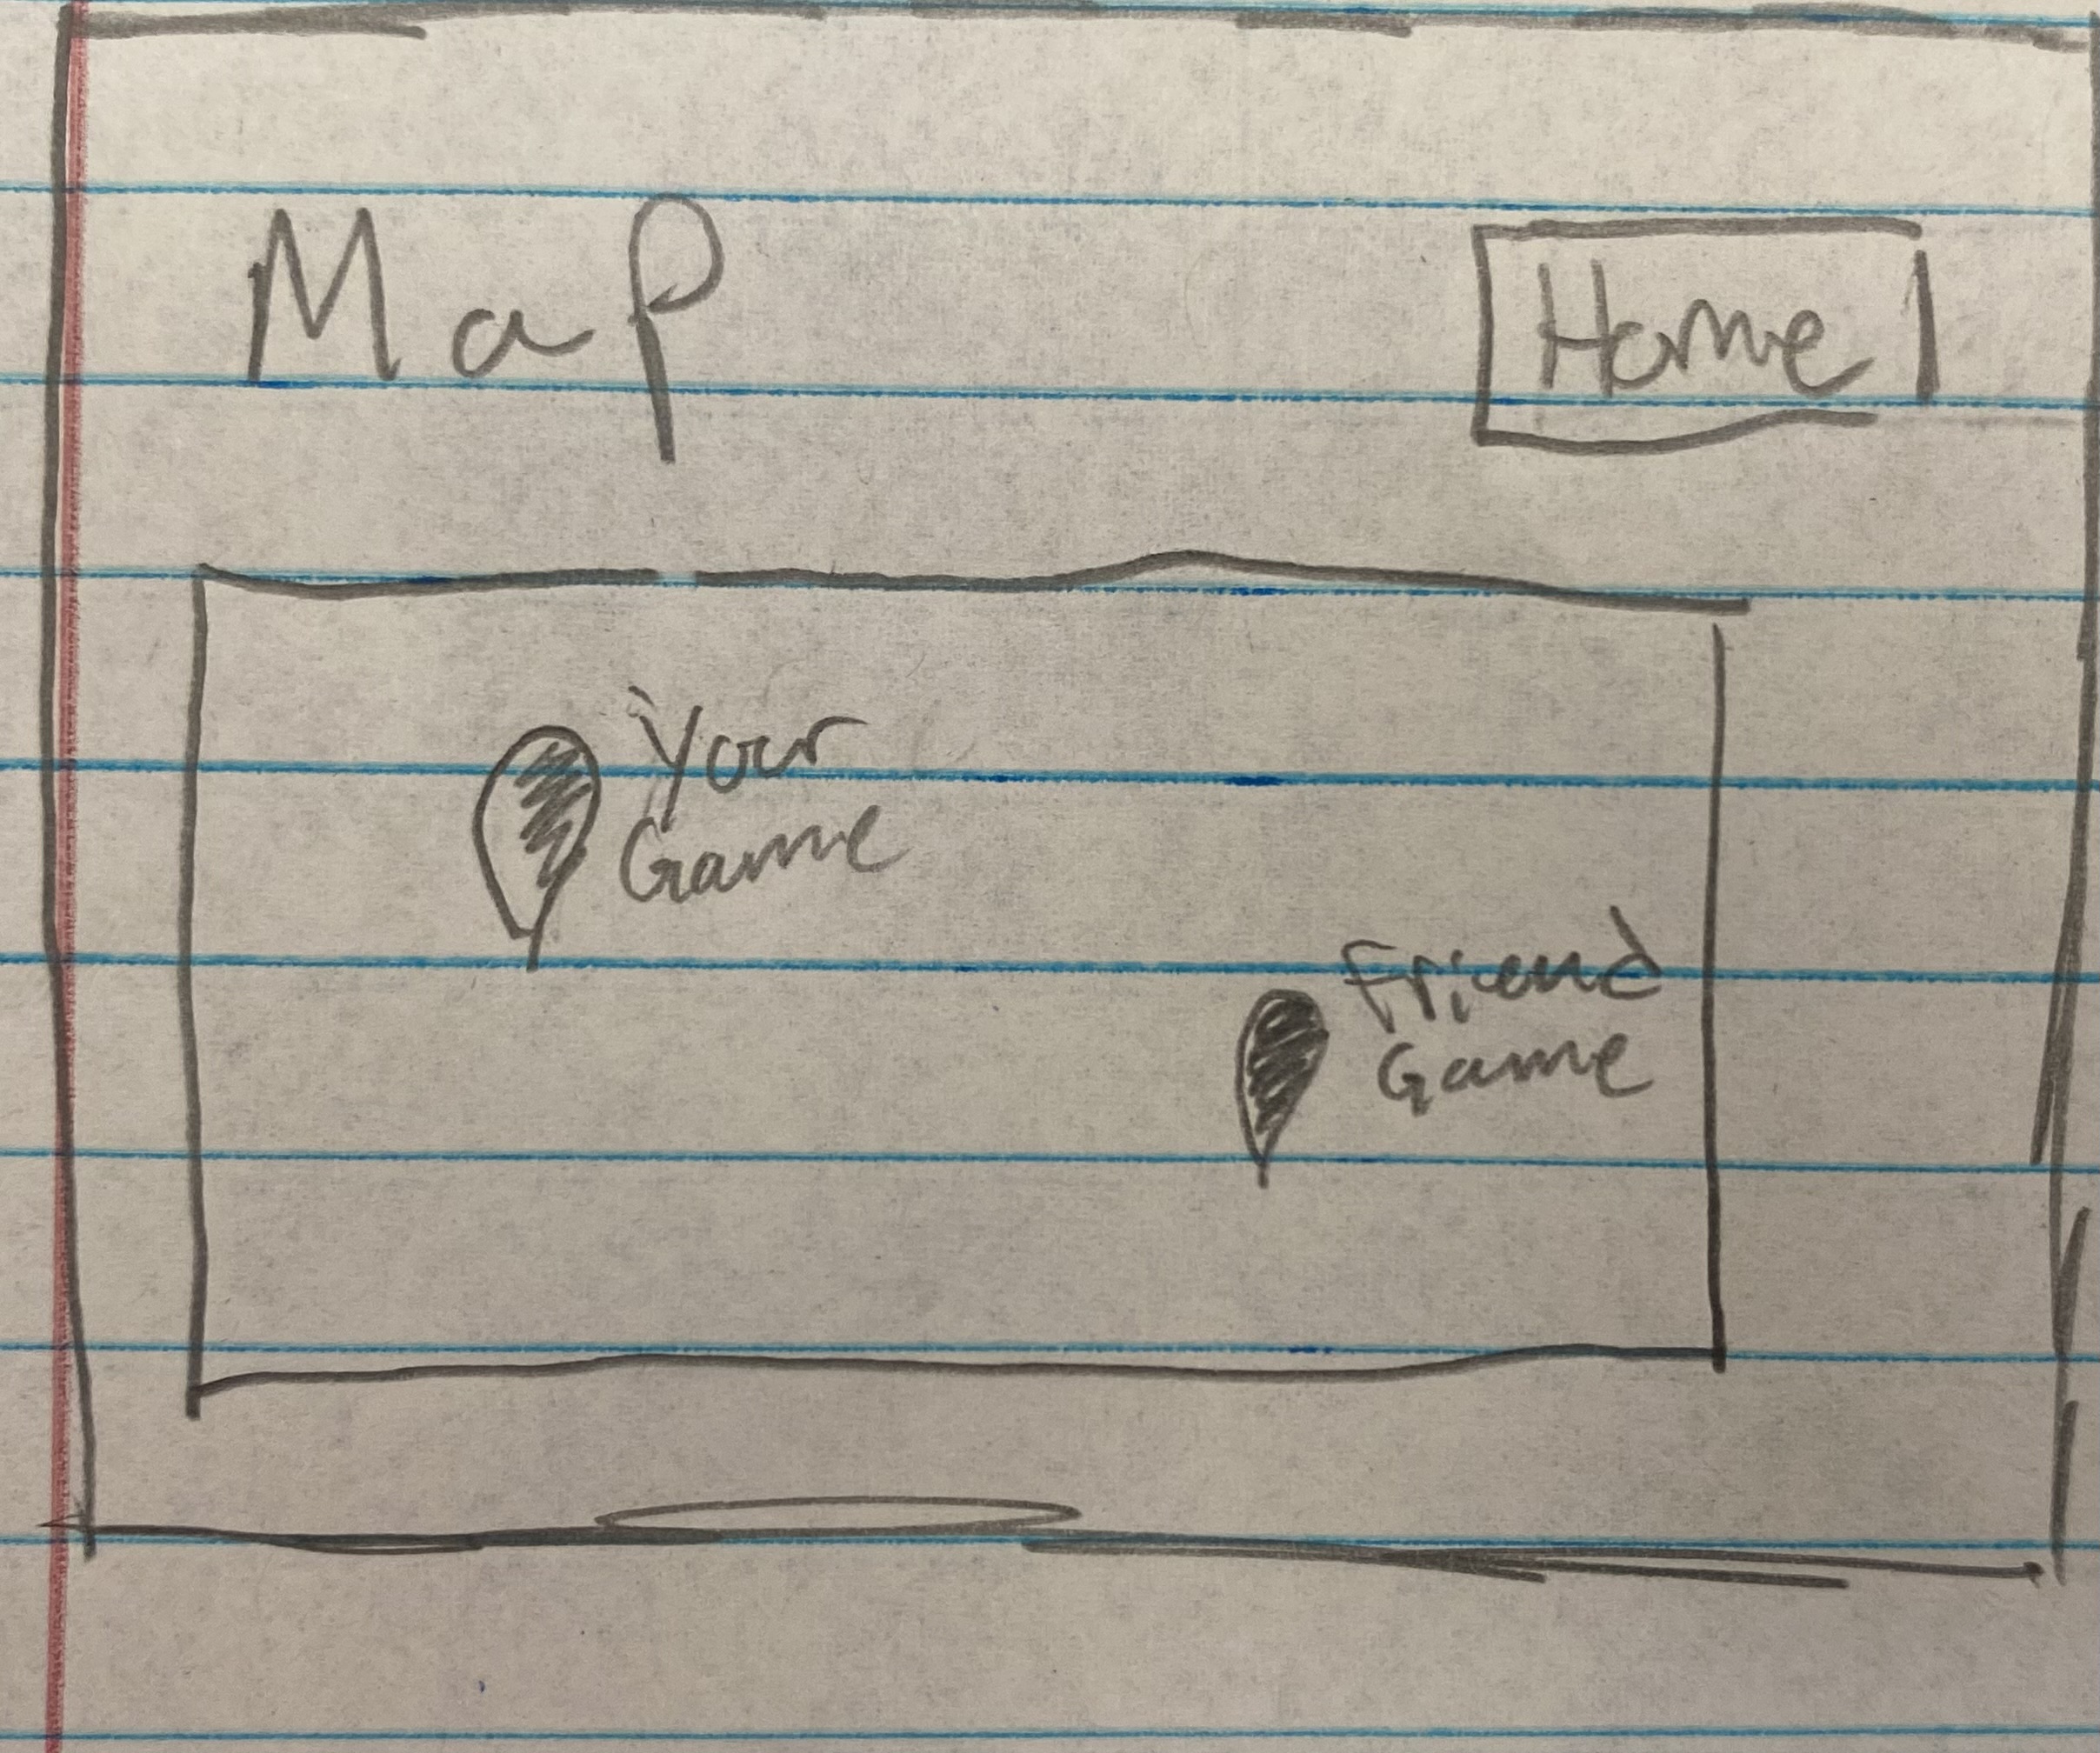 Map
Home
Your
Game
Friend
Game